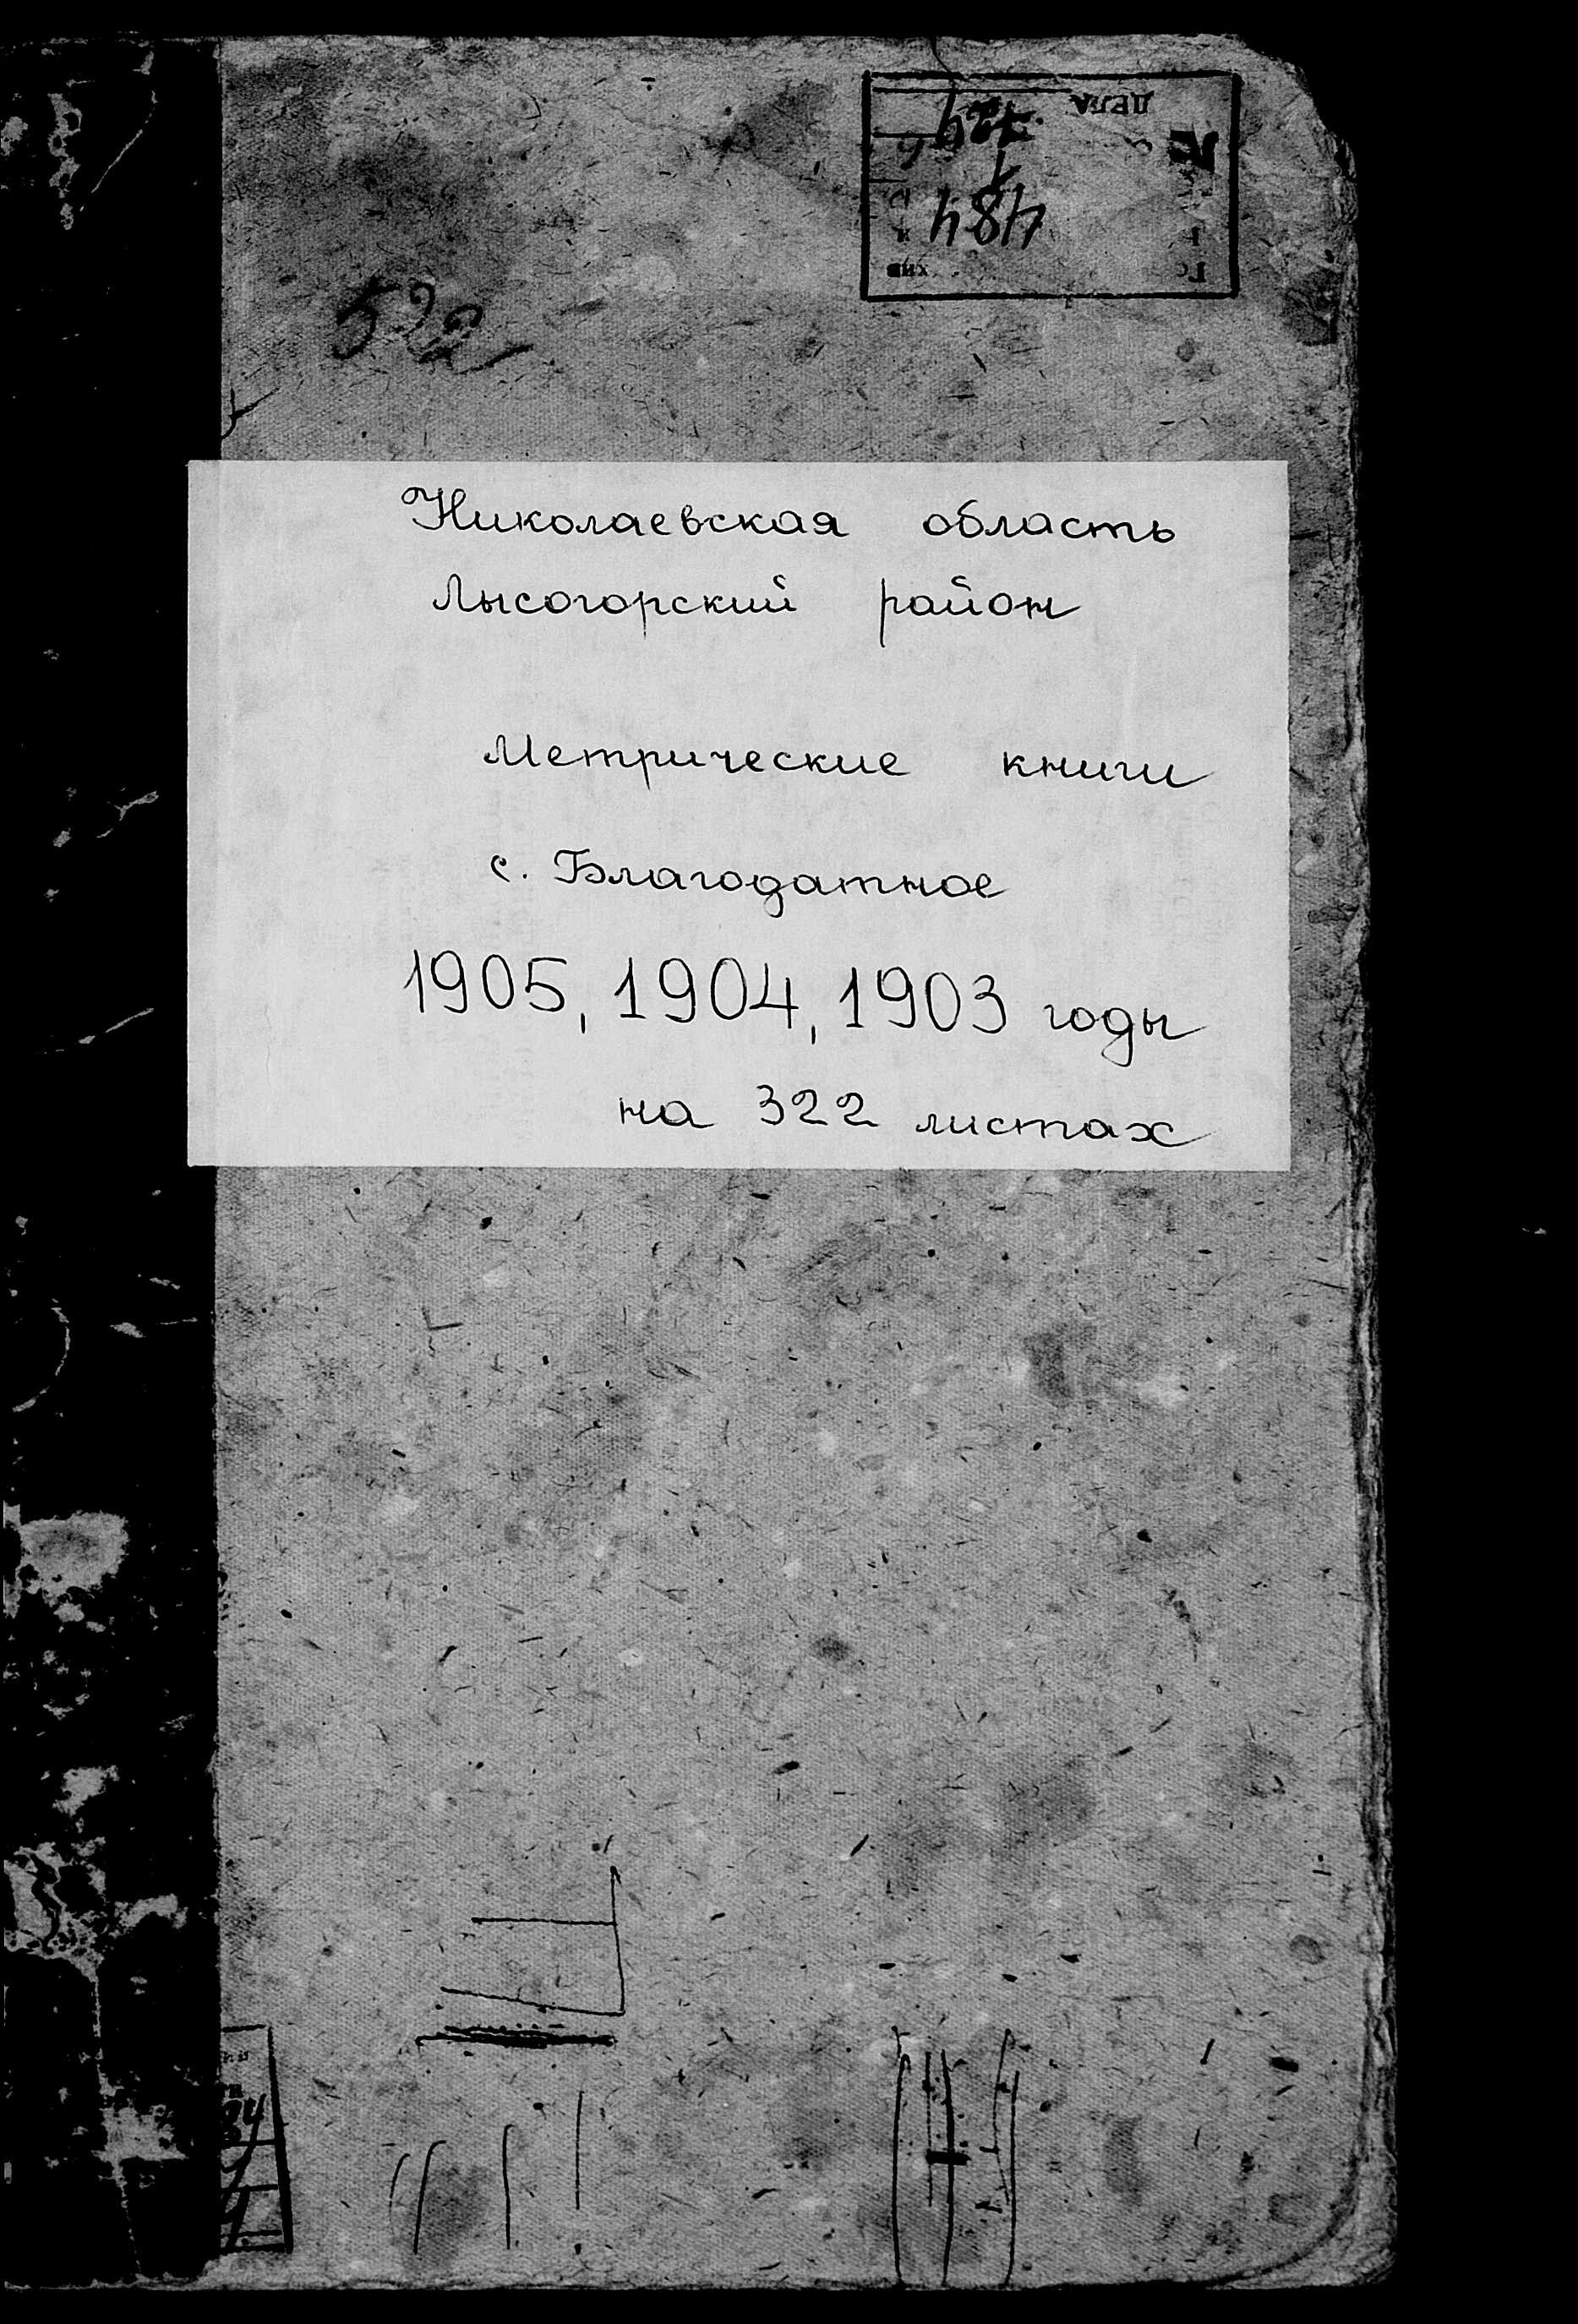 484
522
Николаевская область
Лысогорский район
Метрические книги
с. Благодатное
1905, 1904, 1903 годы
на 322 листах